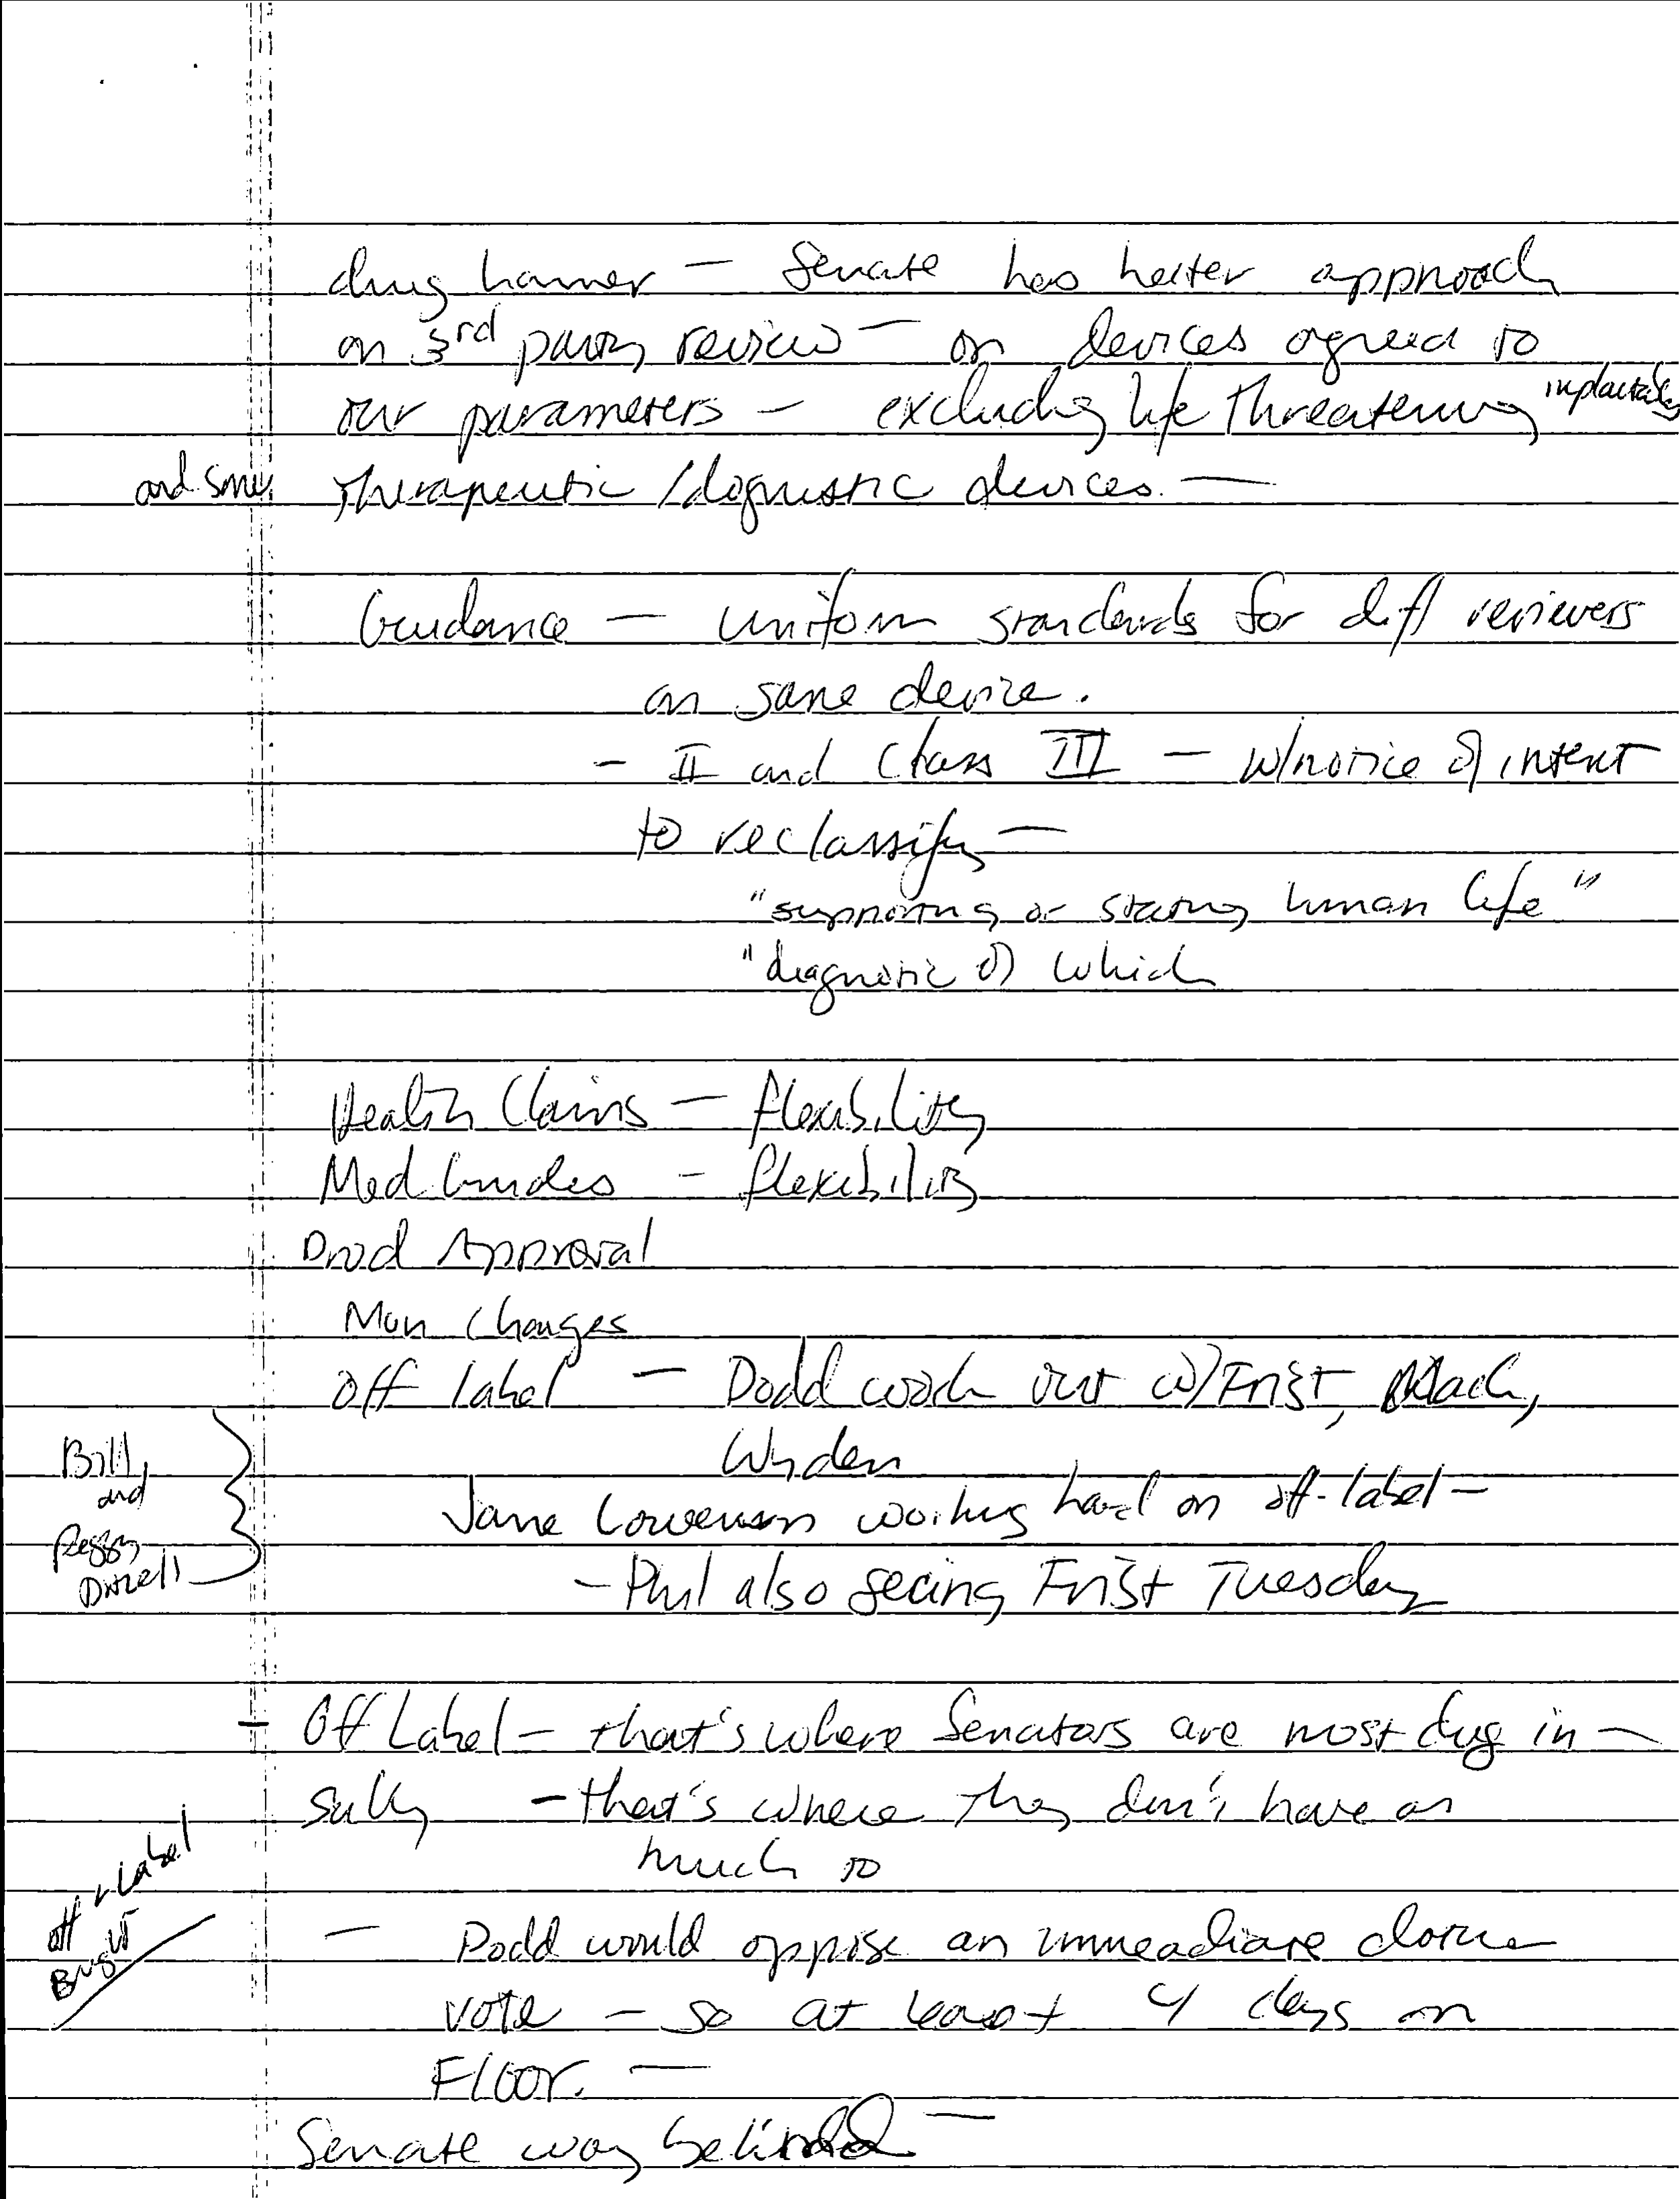 drug — Senate has better approach
on 3rd party review — on devices agreed to
our parameters — excluding life threatening implantables
and some therapeutic / diagnostic devices. —
Guidance — uniform standards for diff reviewers
on same device.
- II and Class III — w/notice of intent
to reclassify —
"supporting or human life"
"diagnostic of which
Health Claims — flexibility
Med Guides — flexibility
Prod Approval
Man Changes
Off label — Dodd work out w/Frist, Mack,
Wyden
Bill
and
Peggy
Jane working hard on off-label —
- Phil also seeing Frist Tuesday
- Off Label — that's where Senators are most dug in —
Sally — that's where they don't have as
much to
off label
— Dodd would oppose an immeadiate cloture
vote — so at least 4 days on
Floor. —
Senate way behind —